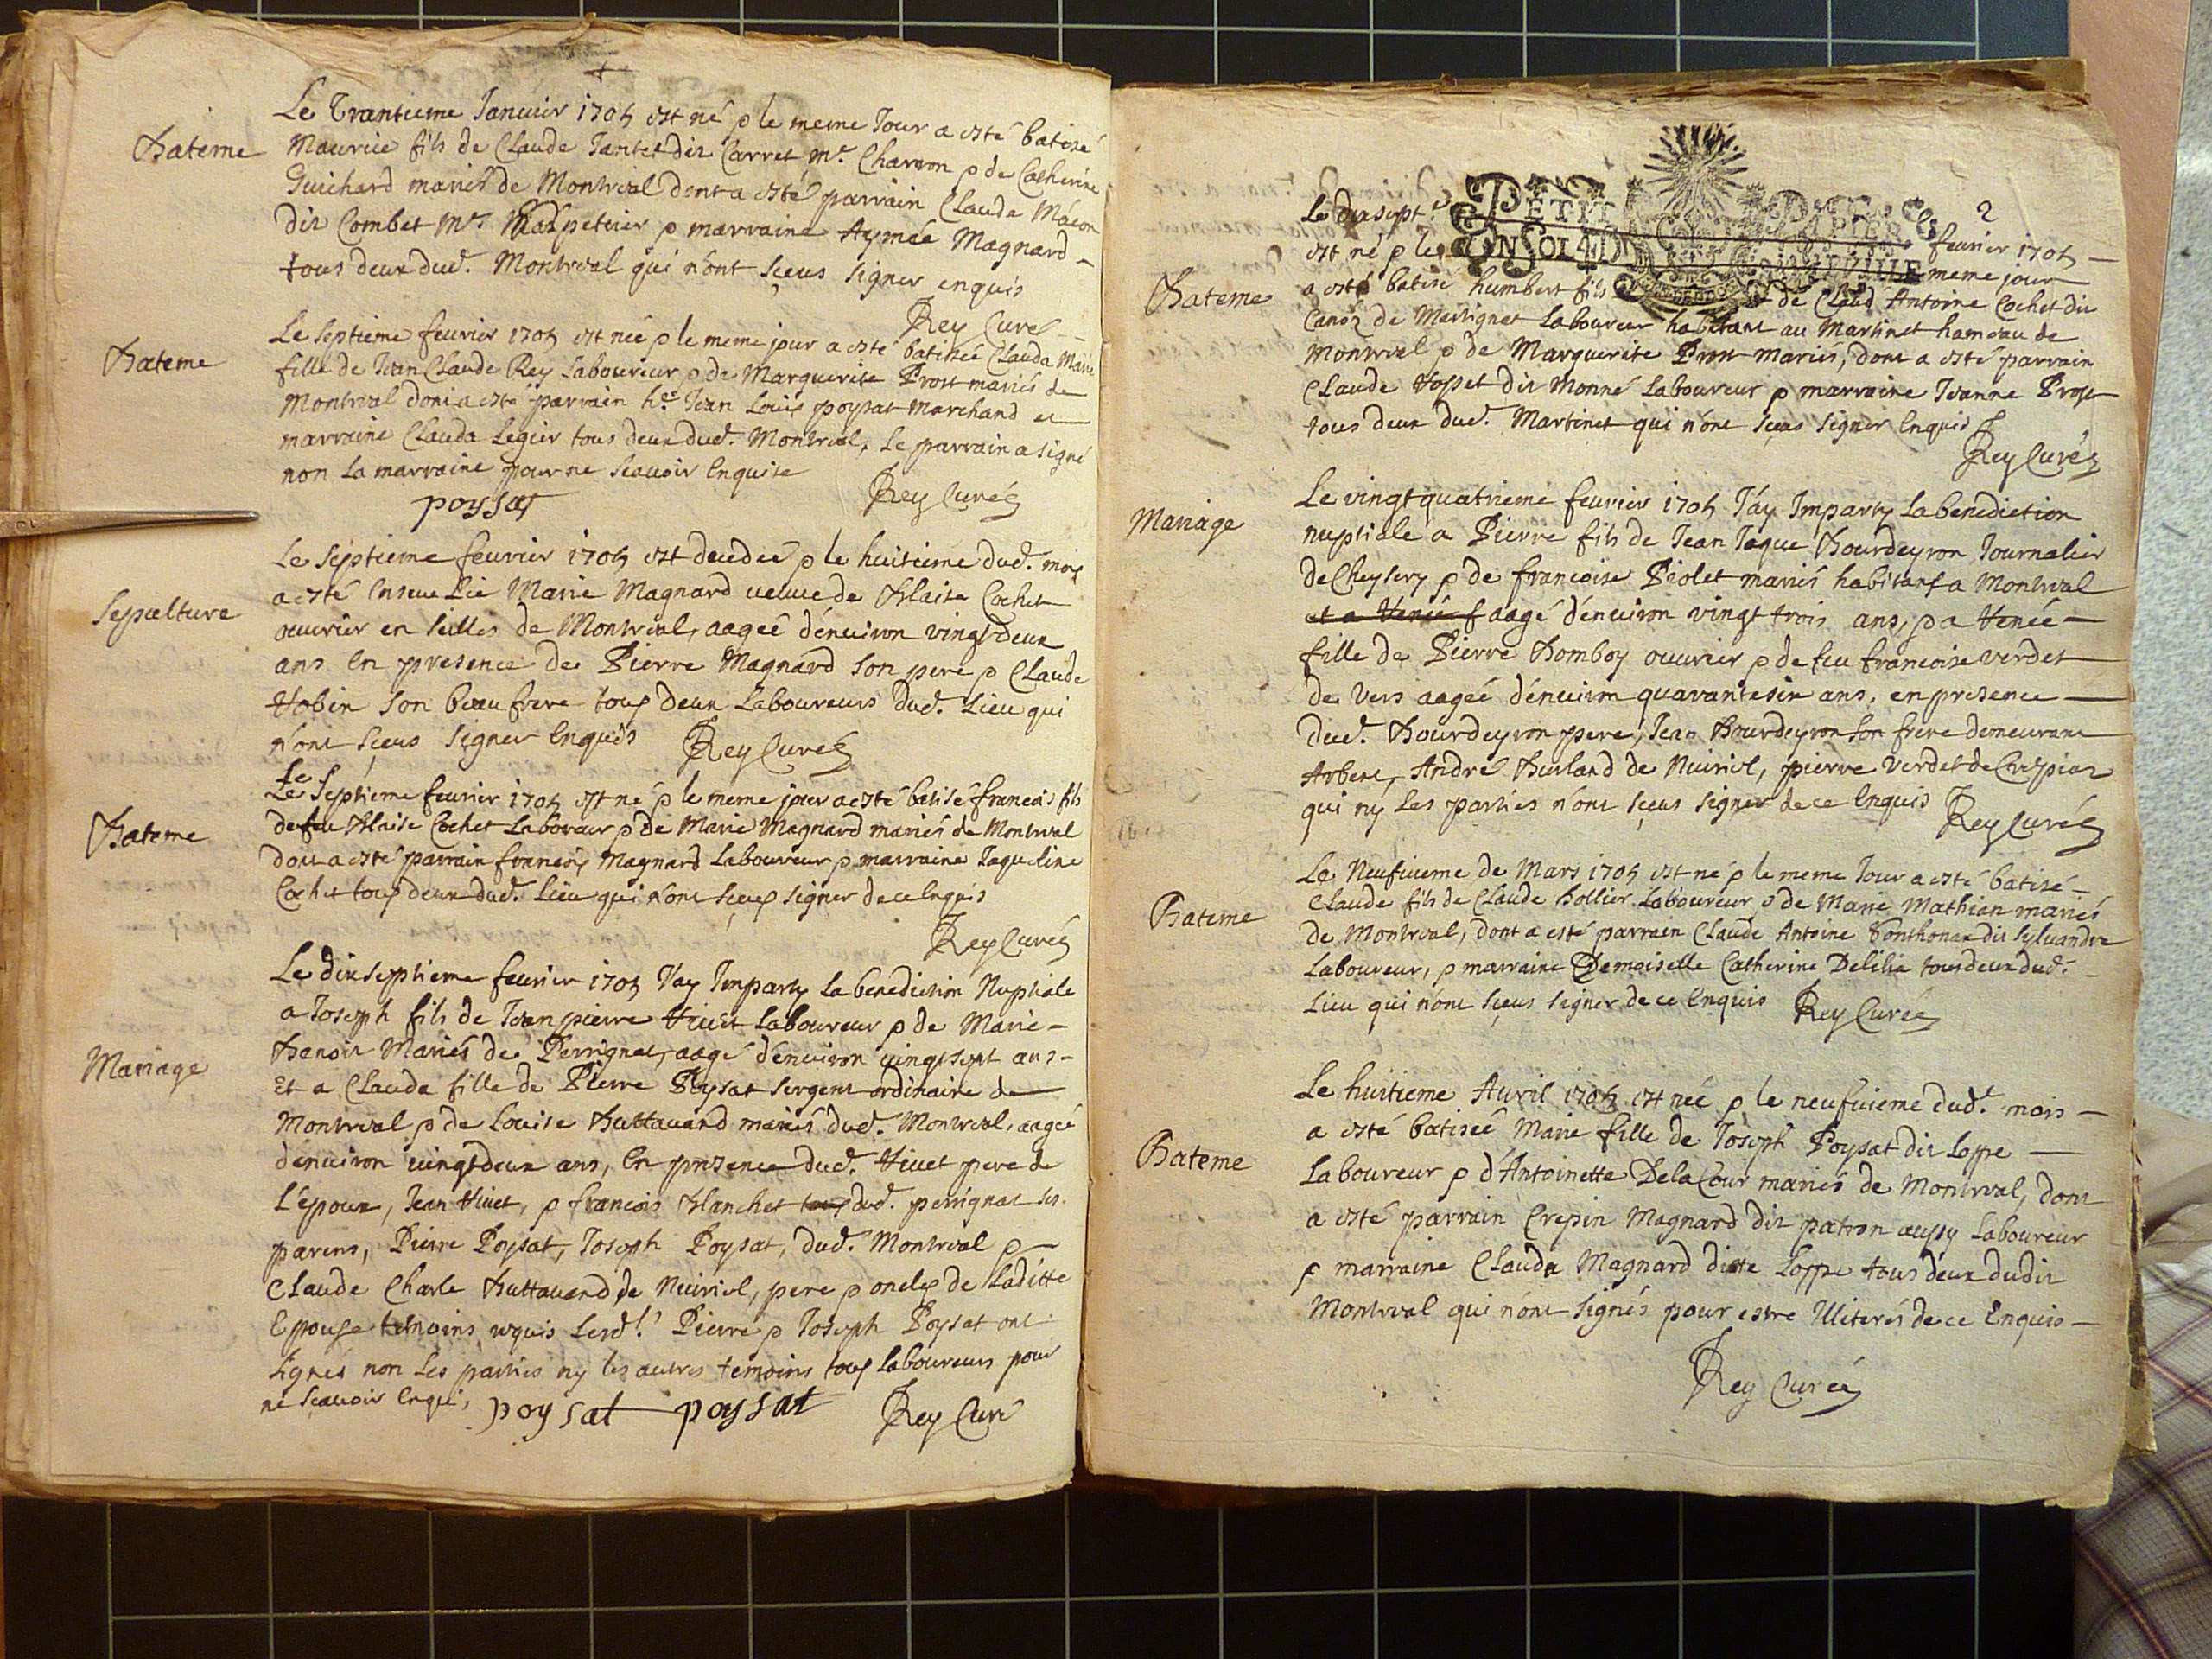 Bateme
Le Trantieme Januier 1705 est né & le meme Jour a esté batisé
Maurice fils de Claude Jantet dit Carret Me. Charron & de Catherine
Guichard mariés de Montreal dont a esté parrain Claude Mácon
dit Combet Me. & marraine Aymée Magnard
tous deux dud. Montreal qui n'ont sçeus signer enquis
Rey Curé
Bateme
Le septieme feurier 1705 est née & le meme jour a esté batisée Clauda Marie
fille de Jean Claude Rey Laboureur & de Marguerite Prost mariés de
Montreal dont a esté parrain Jean Louis poysat Marchand et
marraine Clauda Legier tous deux dud. Montreal, Le parrain a signé
non la marraine pour ne sçauoir Enquise
poysat Rey Curé
Sepulture
Le septieme feurier 1705 est decedée & le huitieme dud. mois
a esté Enseuelie Marie Magnard veuue de Blaise Cochet
ouurier en seilles de Montreal, aagée d'enuiron vingt deux
ans En presence de Pierre Magnard son pere & Claude
Robin son beau frere tous deux Laboureurs dud. Lieu qui
n'ont sçeus signer Enquis Rey Curé
Bateme
Le
Le Septieme feurier 1705 est né & le meme jour a esté batisé francois fils
de feu Blaise Cochet Laboureur & de Marie Magnard mariés de Montreal
dont a esté parrain francois Magnard Laboureur & marraine Jaqueline
Cochet tous deux dud. Lieu qui n'ont sçeus signer de ce Enquis
Rey Curé
Mariage
Le dixseptieme feurier 1705 J'ay Imparty La benediction Nuptiale
a Joseph fils de Jean pierre Viuet Laboureur & de Marie
Benoit Mariés de Perrignat, aagé d'enuiron vingt sept ans
Et a Clauda fille de Pierre Poysat sergent ordinaire de
Montreal & de Louise Buttauand mariés dud. Montreal, aagée
d'enuiron vingt deux ans, En presence dud. Viuet pere de
L'epoux, Jean Viuet, & francois Blanchet tous dud. perrignat ses
parens, Pierre Poysat, Joseph Poysat, dud. Montreal &
Claude Charle Buttauand de Neiriol, pere & oncles de Laditte
Epouse temoins requis Lesd. Pierre & Joseph Poysat ont
signés non Les parties ny les autres temoins tous Laboureurs pour
ne sçauoir Enquis, poysat poysat Rey Curé
2
PETIT PAPIER
UN SOL 4 D
Bateme
Le dixsept.e feurier 1705
est né & le meme jour
a esté batisé humbert fils de Claud Antoine Cochet dit
de Martignat Laboureur habitant au Martinet hameau de
Montreal & de Marguerite Prost Mariés, dont a esté parrain
Claude Vosset dit Monné Laboureur & marraine Jeanne Prost
tous deux dud. Martinet qui n'ont sçeus signer Enquis
Rey Curé
Mariage
Le vingt quatrieme feurier 1705 J'ay Imparty La benediction
nuptiale a Pierre fils de Jean Jaque Bourdeyron Journalier
de Cheysery & de francoise Piolet mariés habitans a Montreal
et a Renée f aagé d'enuiron vingt trois ans, & a Renée
fille de Pierre Bomboy ouurier & de feu francoise verdet
de Vers aagée d'enuiron quarante six ans, en presence
dud. Bourdeyron pere, Jean Bourdeyron son frere demeurant
Arbent, André Burland de Neiriol, pierre verdet de Crespiat
qui ny Les parties n'ont sçeus signer de ce Enquis Rey Curé
Bateme
Le Neufuieme de Mars 1705 est né & le meme Jour a esté batisé
Claude fils de Claude hollier Laboureur & de Marie Mathian mariés
de Montreal, dont a esté parrain Claude Antoine Ponthonax dit Syluandre
Laboureur, & marraine Demoiselle Catherine Delilia tous deux dud.
Lieu qui n'ont sçeus signer de ce Enquis Rey Curé
Bateme
Le huitieme Auril 1705 est née & le neufuieme dud. mois
a esté batisée Marie fille de Joseph Poysat dit Loppe
Laboureur & d'Antoinette DelaCour mariés de Montreal, dont
a esté parrain Crepin Magnard dit patron aussy Laboureur
& marraine Clauda Magnard ditte Loppe tous deux dudit
Montreal qui n'ont signés pour estre Illiterés de ce Enquis
Rey Curé